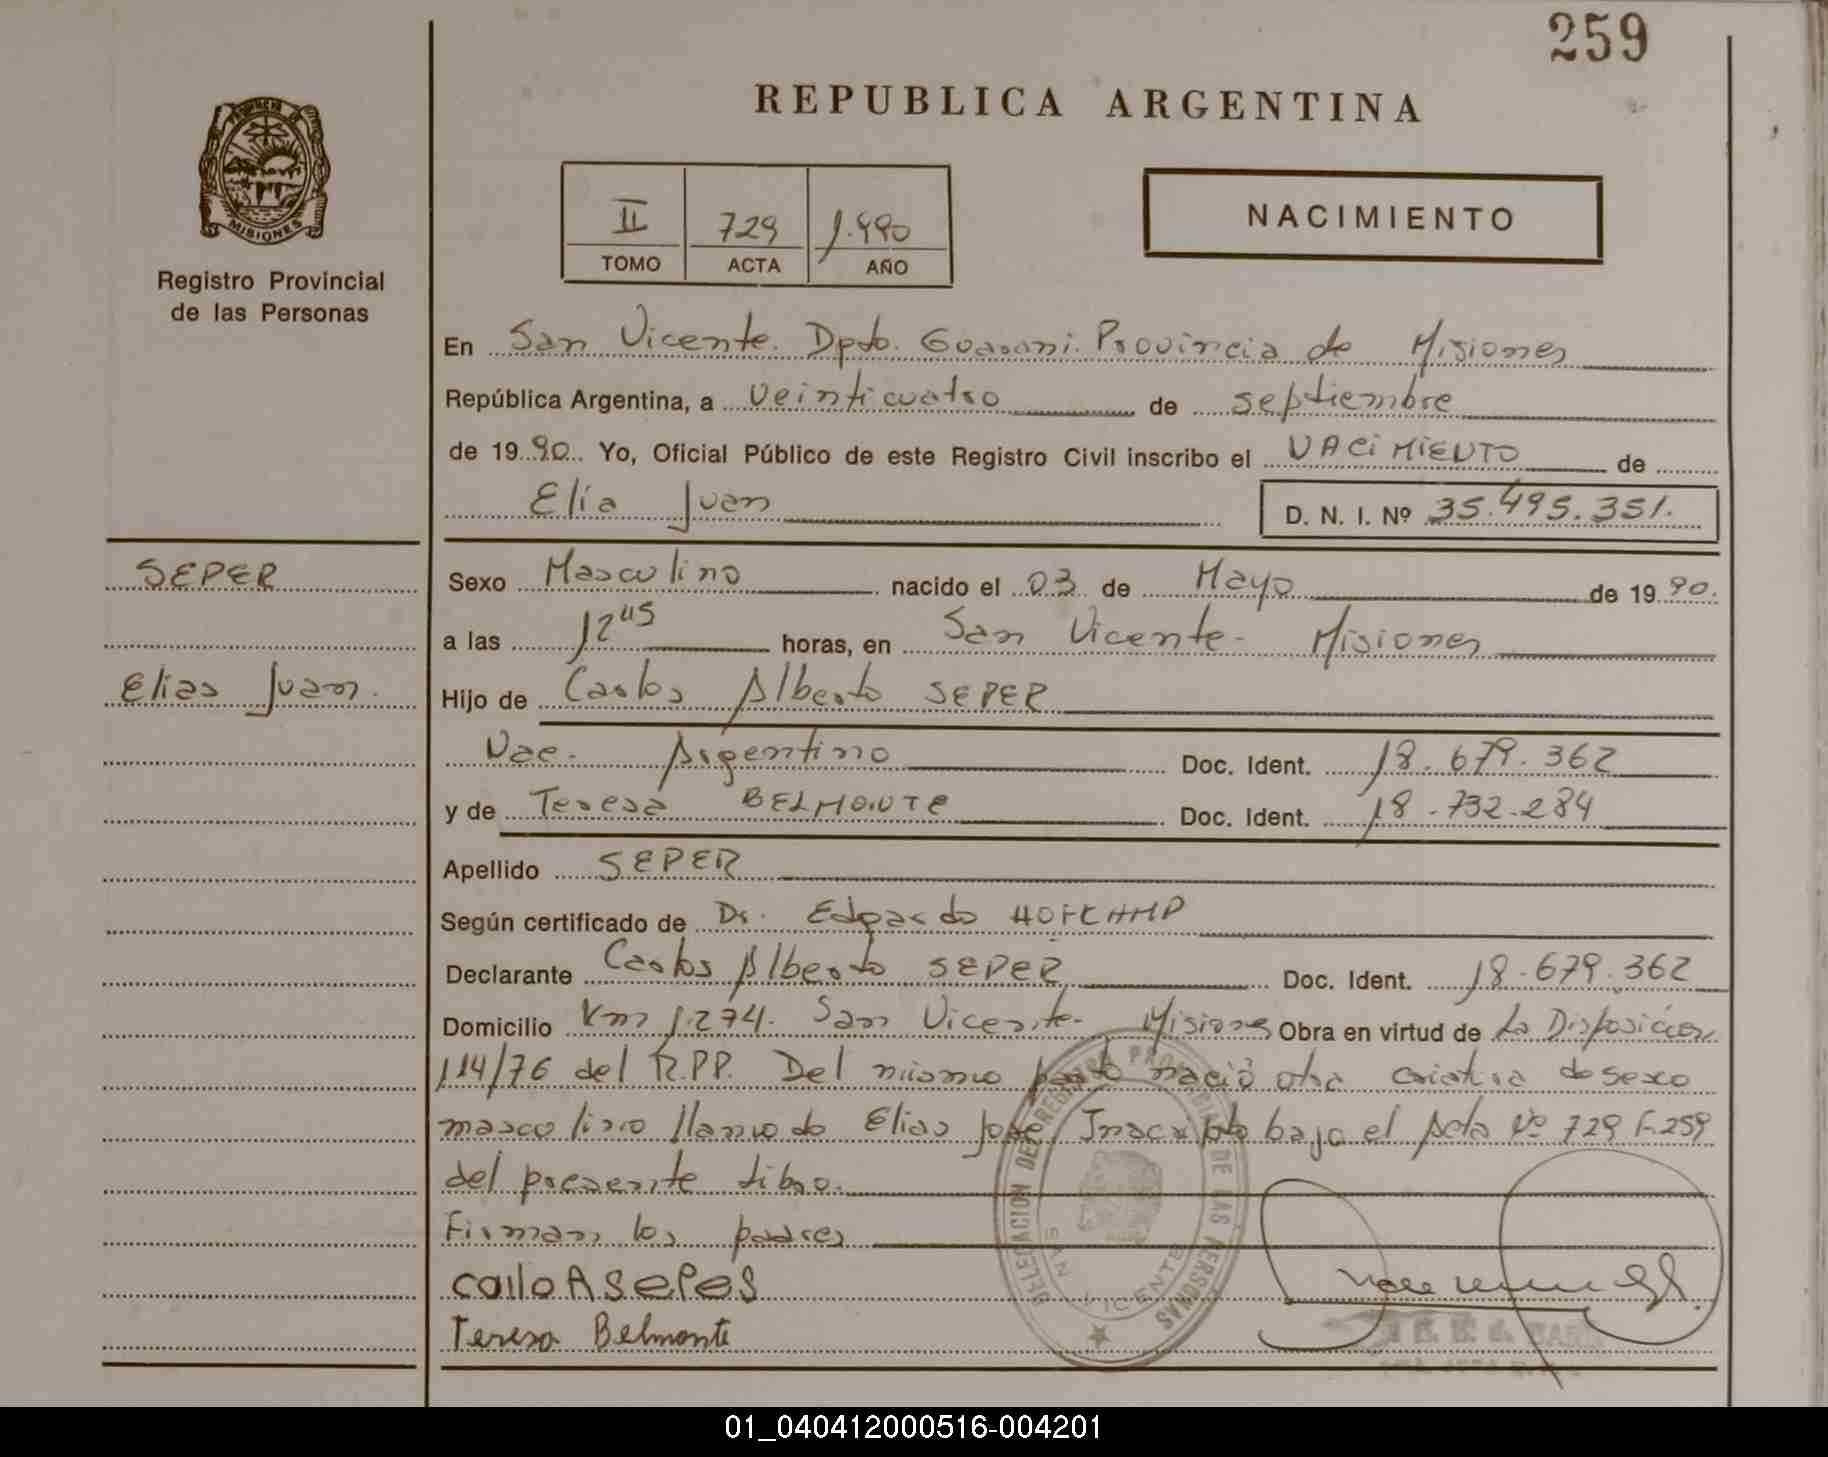 259
REPUBLICA ARGENTINA
PROVINCIA DE
MISIONES
Registro Provincial
de las Personas
II 729 1.990
TOMO ACTA AÑO
NACIMIENTO
En San Vicente. Dpto. Guarani. Provincia de Misiones
República Argentina, a veinticuatro de septiembre
de 1990. Yo, Oficial Público de este Registro Civil inscribo el NACiMiENTO de
Elia Juan
D. N. I. Nº 35.495.351.
SEPER
Elias Juan.
Sexo Masculino nacido el 03 de Mayo de 1990.
a las 12 45 horas, en San Vicente - Misiones
Hijo de Carlos Alberto SEPER
Nac. Argentino Doc. Ident. 18.679.362
y de Teresa BELMONTE Doc. Ident. 18.732.284
Apellido SEPER
Según certificado de Dr. Edgardo HOFCAMP
Declarante Carlos Alberto SEPER Doc. Ident. 18.679.362
Domicilio Km 1.274. San Vicente - Misiones Obra en virtud de La Disposición
114/76 del R.P.P. Del mismo parto nació otra criatura de sexo
masculino llamado Elias José, Inscripto bajo el Acta Nº 729 F.259
del presente libro.
Firman los padres
calloASePeS
Teresa Belmonte
DELEGACION DEL REGISTRO PROVINCIAL DE LAS PERSONAS
SAN VICENTE
01_040412000516-004201